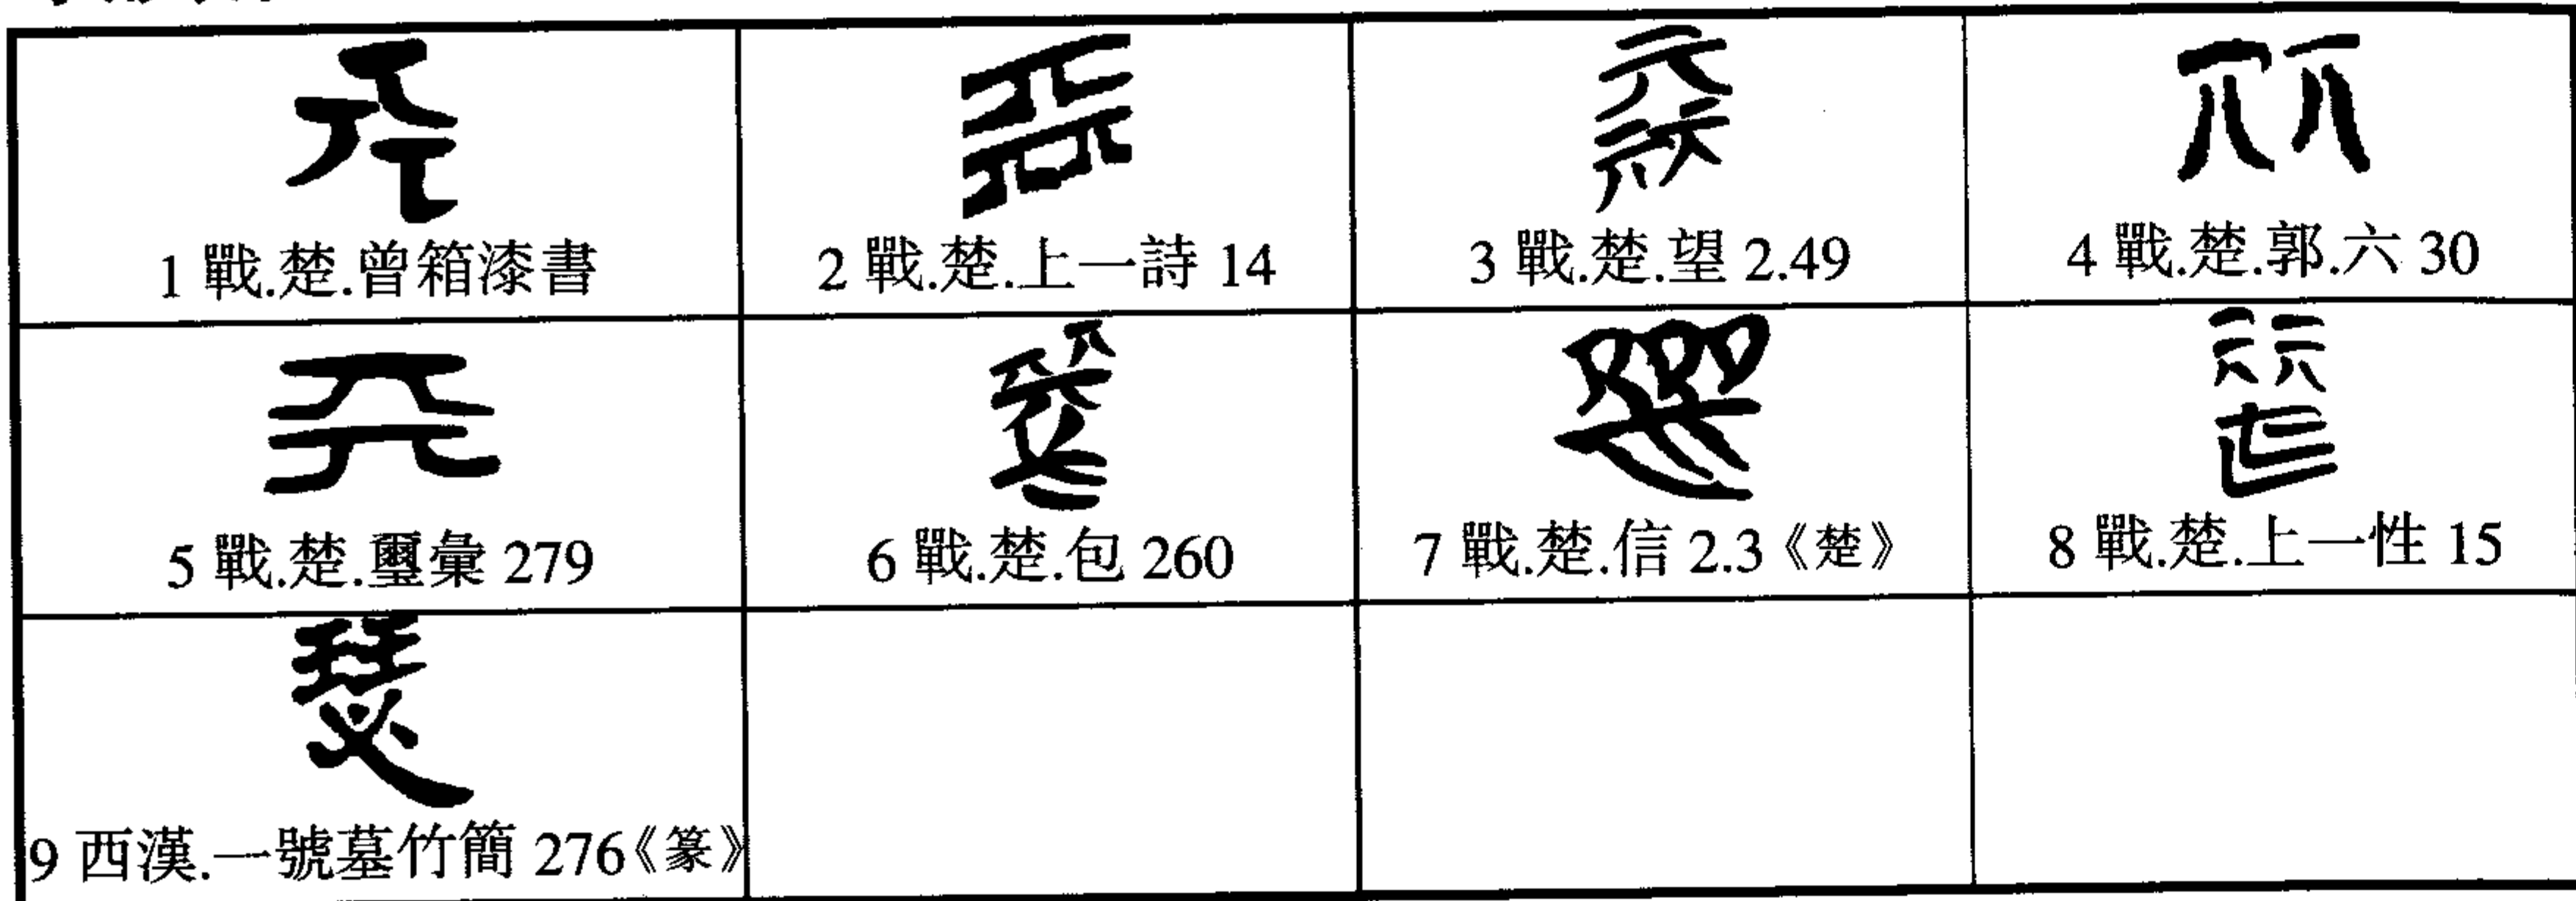 1 戰.楚.曾箱漆書
2 戰.楚.上一詩 14
3 戰.楚.望 2.49
4 戰.楚.郭.六 30
5 戰.楚.璽彙 279
6 戰.楚.包 260
7 戰.楚.信 2.3《楚》
8 戰.楚.上一性 15
9 西漢.一號墓竹簡 276《篆》